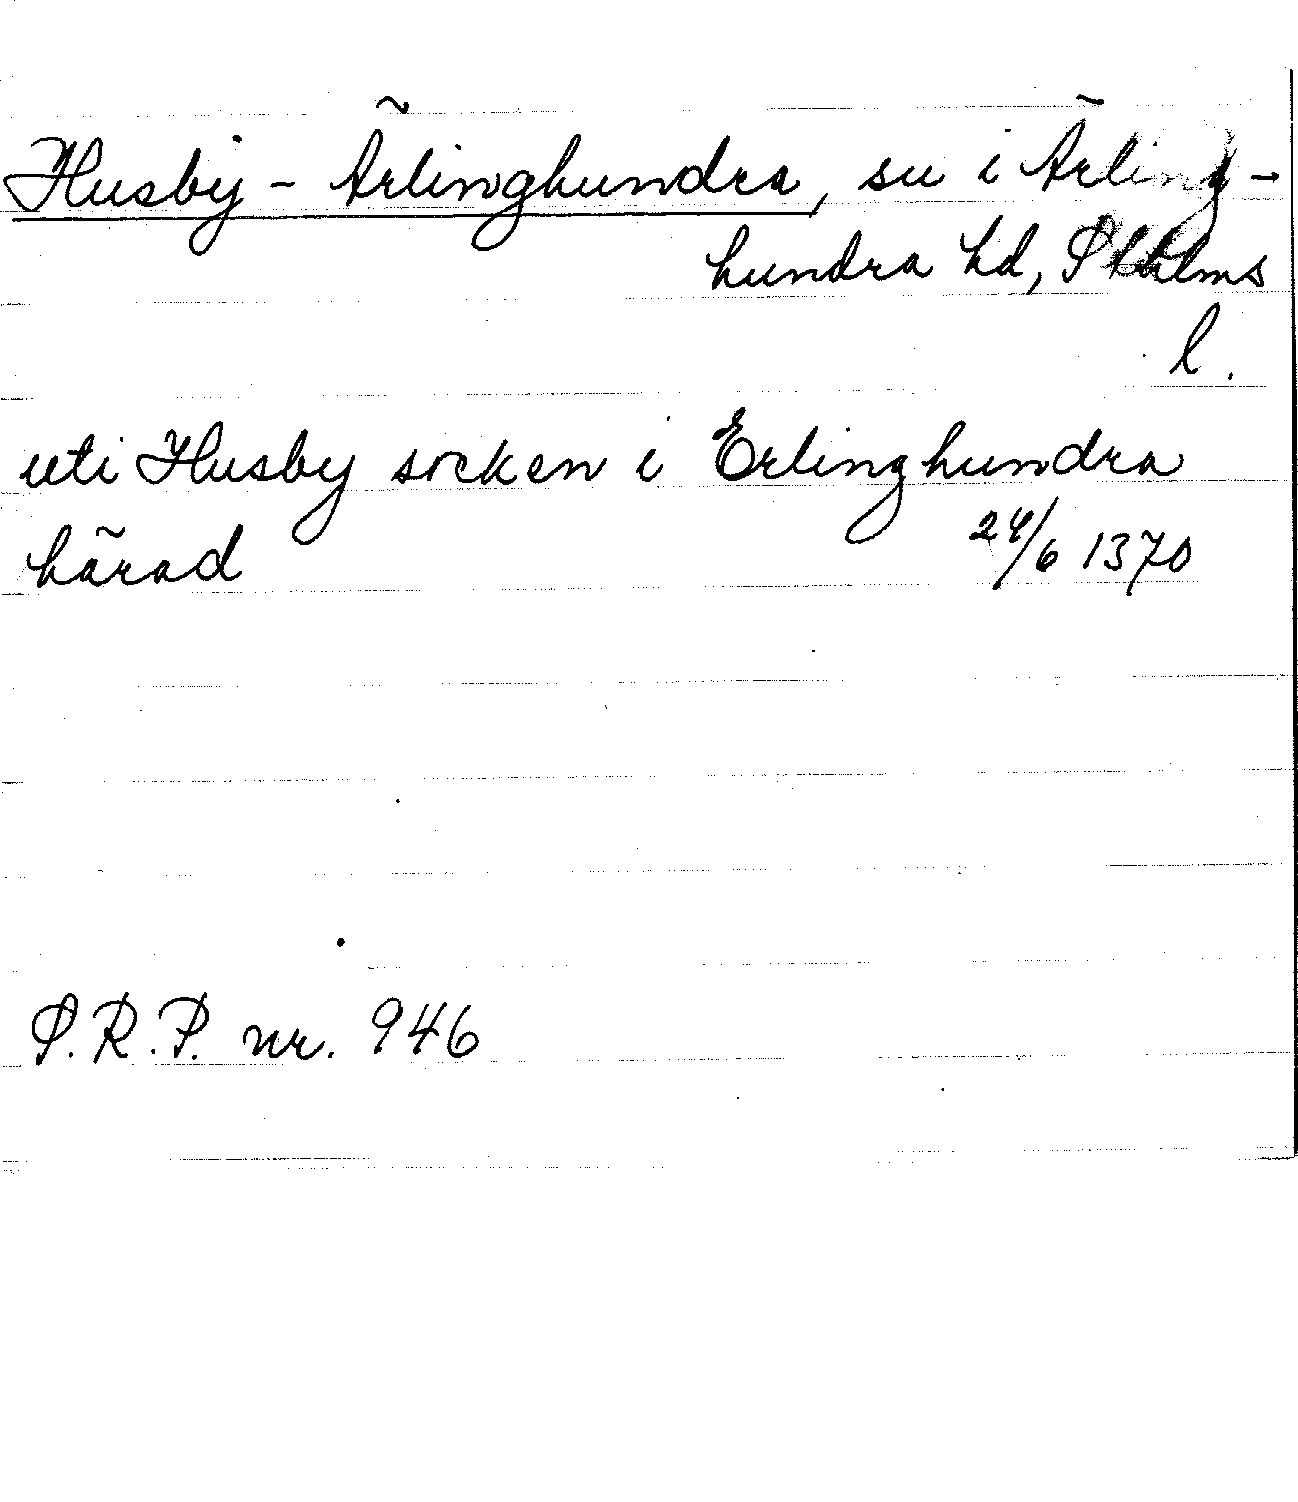 Husby - Ärlinghundra, sn i Ärling-
hundra hd, Sthlms
l.
uti Husby socken i Erlinghundra
härad 24/6 1370
S.R.P. nr. 946